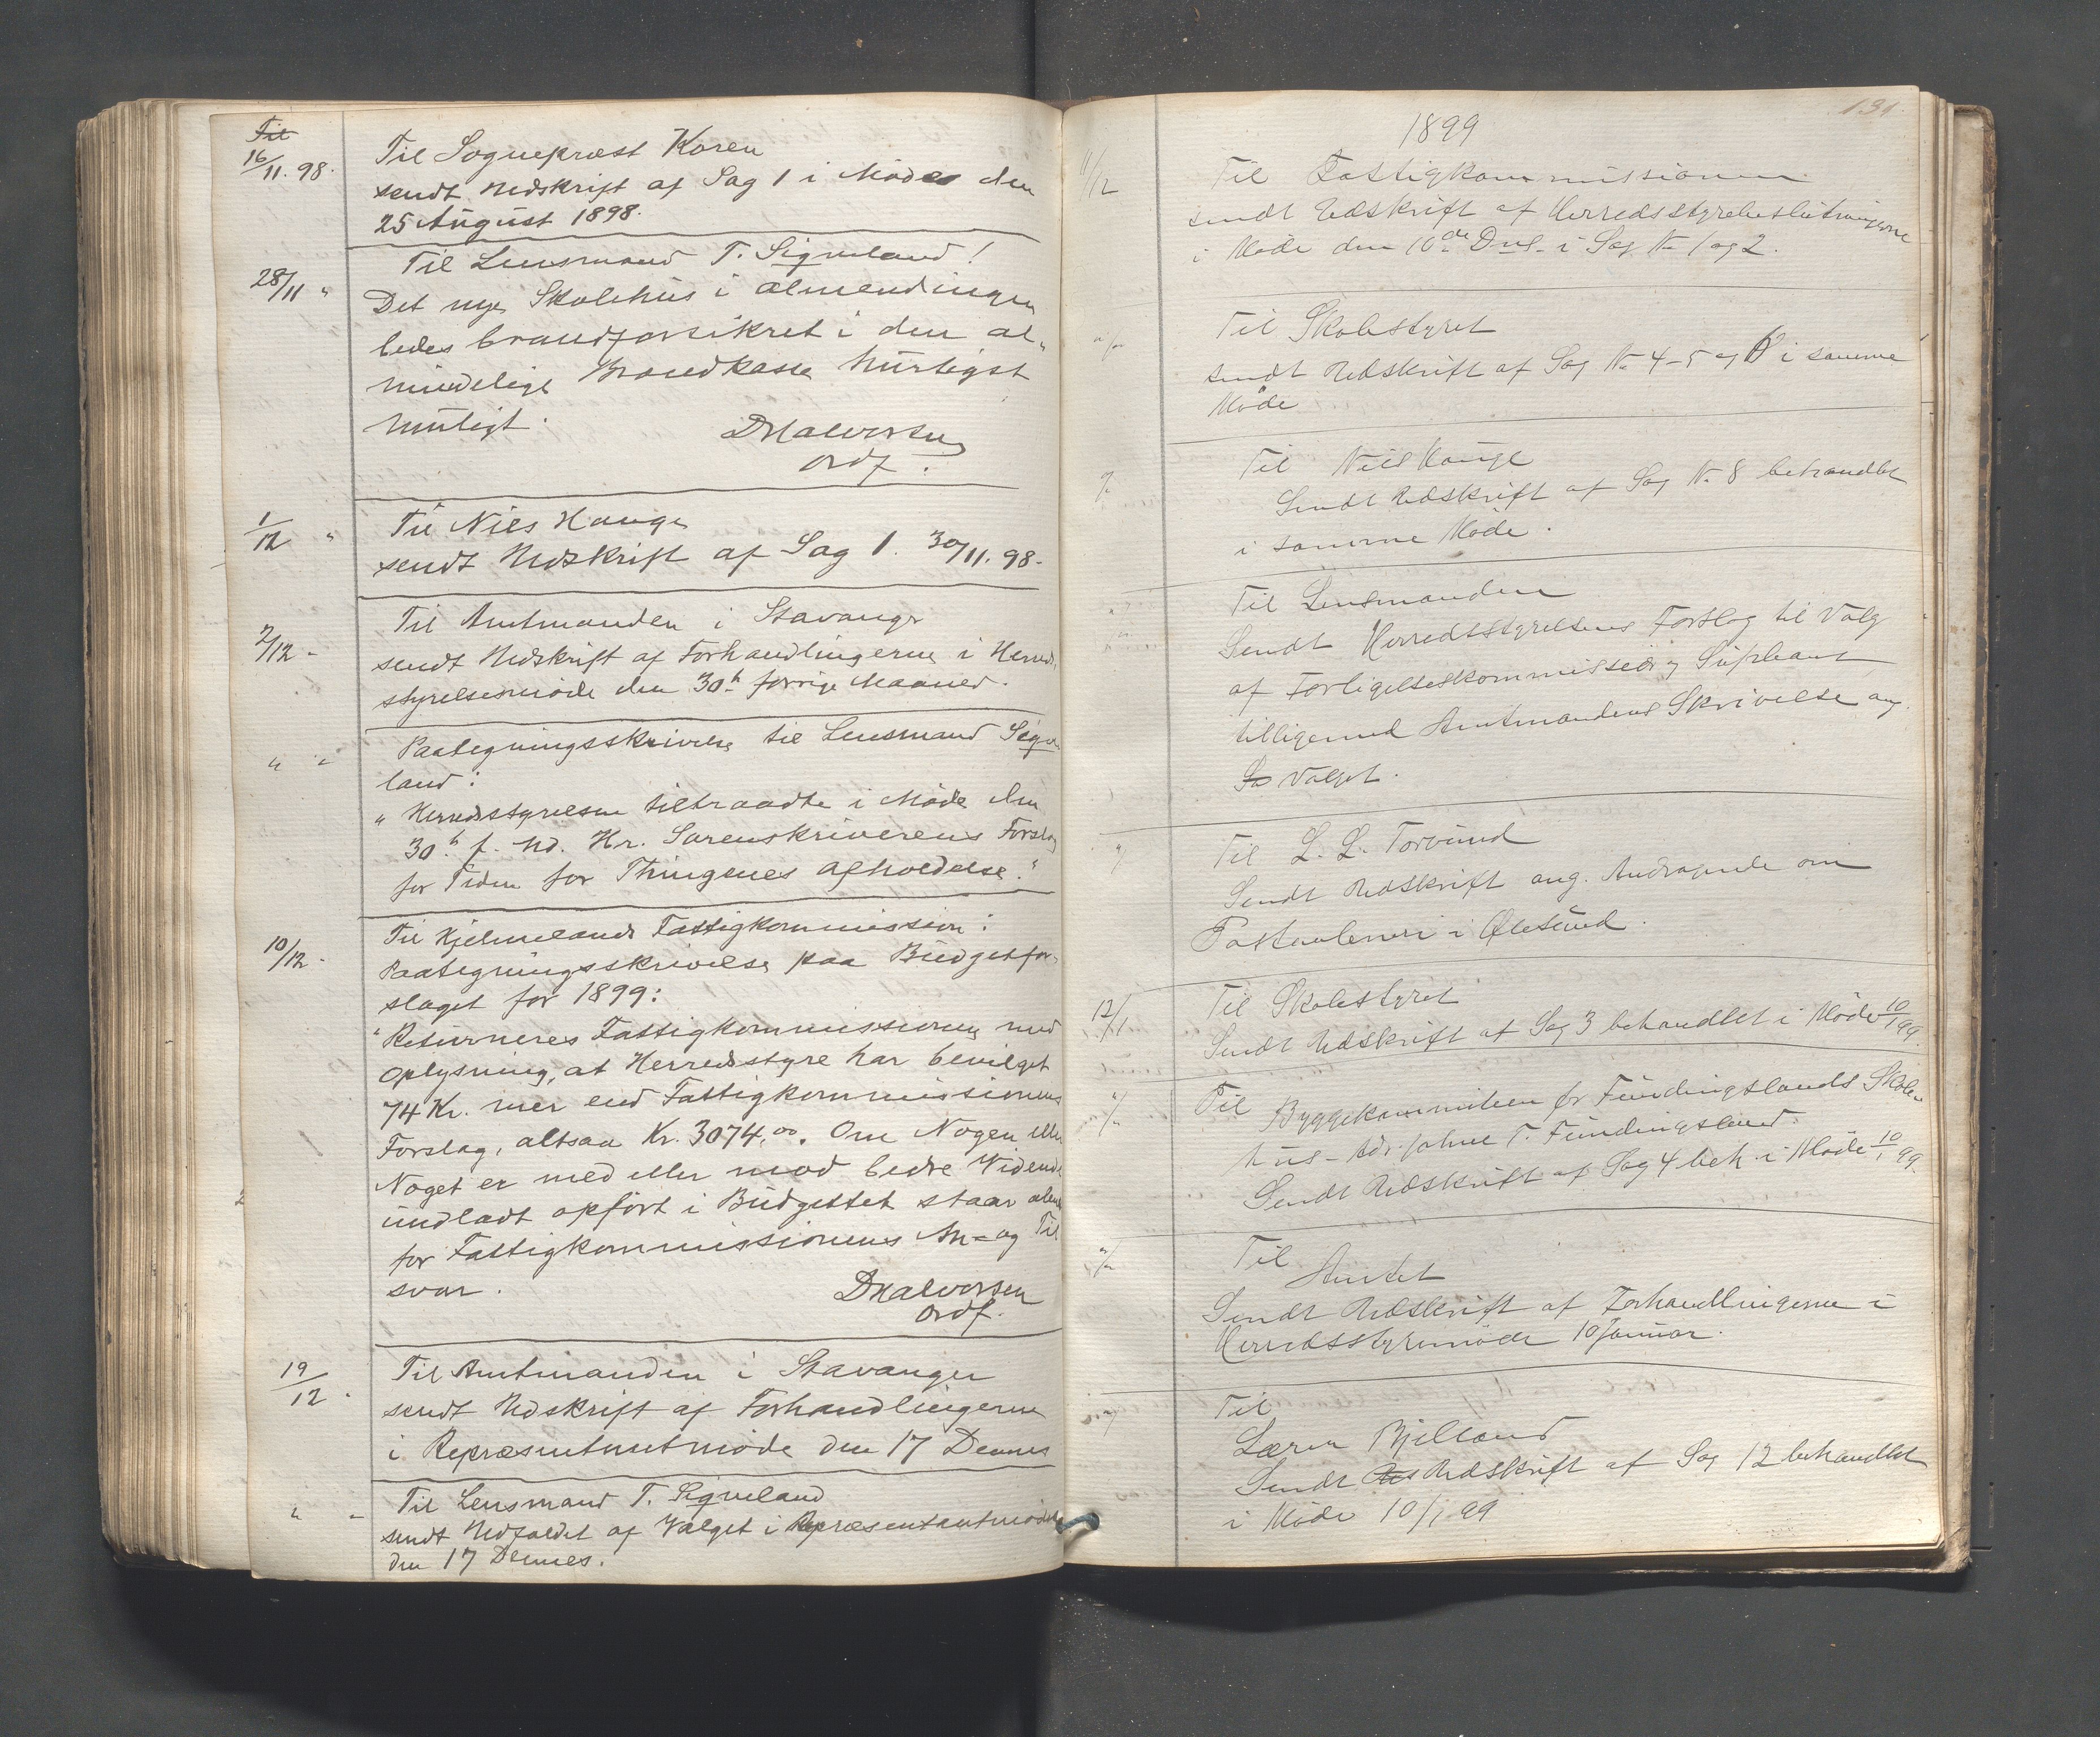 Til
16/11. 98. Til Sognepræst Koren
sendt Udskrift af Sag 1 i Møde den
25 August 1898.
28/11 " Til Lensmand T. Sigveland!
Det nye Skolehus i almendingen
bedes brandforsikret i den al-
mindelige Brandkasse hurtigst
muligt.
DHalvorsen
Ordf.
1/12 " Til Niels Hauge
sendt Udskrift af Sag 1. 30/11. 98.
2/12 - Til Amtmanden i Stavanger
sendt Udskrift af Forhandlingerne i Herreds-
styrelsemøde den 30te forrige Maaned.
" " Paategningsskrivelse til Lensmand Sigve-
land:
" Herredsstyrelsen tiltraadte i Møde den
30te f. Md. Hr. Sorenskriverens Forslag
for Tiden for Thingenes Afholdelse."
10/12 - Til Hjelmelands Fattigkommission:
Paategningsskrivelse paa Budgetfor-
slaget for 1899:
"Returneres Fattigkommissionen med
Oplysning, at Herredsstyre har bevilget
74 Kr. mer end Fattigkommissionens
Forslag, altsaa Kr. 3074,00. Om Nogen eller
Noget er med eller mod bedre Vidende
undladt opført i Budgettet staar alene
for Fattigkommissionens An- og Til
svar.
DHalvorsen
Ordf.
19/12 - Til Amtmanden i Stavanger
sendt Udskrift af Forhandlingerne
i Repræsentantmøde den 17 Dennes
" - Til Lensmand T. Sigveland
sendt Udfaldet af Valget i Repræsentantmøde
den 17 Dennes.
131.
1899
11/12 Til Fattigkommissionen
sendt Udskrift af Herredsstyrebeslutningerne
i Møde den 10de Ds. i Sag No 1 og 2.
Til Skolestyret
sendt Udskrift af Sag No 4-5 og 6 i samme
Møde
Til Niels Hauge
Sendt Udskrift af Sag No 8 behandlet
i samme Møde.
Til Lensmanden
Sendt Herredsstyrelsens Forslag til Valg
af Forligelseskommissær og Supleant
tilligemed Amtmandens Skrivelse ang.
Valget.
Til L. L. Torvund
Sendt Udskrift ang. Andragende om
Postaabneri i Ølesund.
12/1 Til Skolestyret
Sendt Udskrift af Sag 3 behandlet i Møde 10/1 99.
Til Byggekommiteen for Fundingslands Skole-
hus - Adr. Johne T. Fundingsland.
Sendt Udskrift af Sag 4 beh. i Møde 10/1 99.
Til
Amtet
Sendt Udskrift af Forhandlingerne i
Herredsstyremøde 10 Januar.
Til
Lærer Bjelland
Sendt Udskrift af Sag 12 behandlet
i Møde 10/1 99